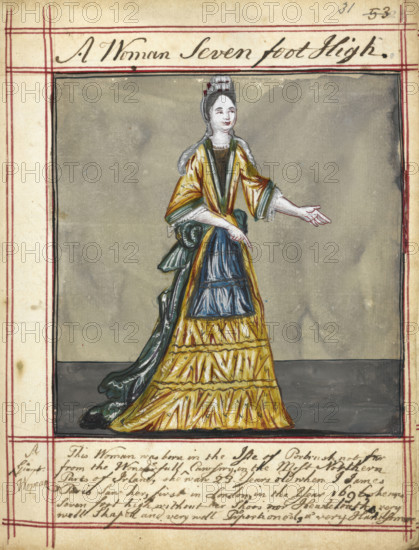 31 53
A Woman Seven foot High.
A
Giant
Woman
This Woman was born in the Isle of Portrush not far
from the Wonderfull Causory in the Most Northern
Parts of Ireland, she was 23 years old when I James
Paris saw her first in London in the Year 1696, she was
Seven foot high without her Shoes nor Headcloaths, very
well Shaped and very well Proportionable, a very Handsome
PHOTO 12